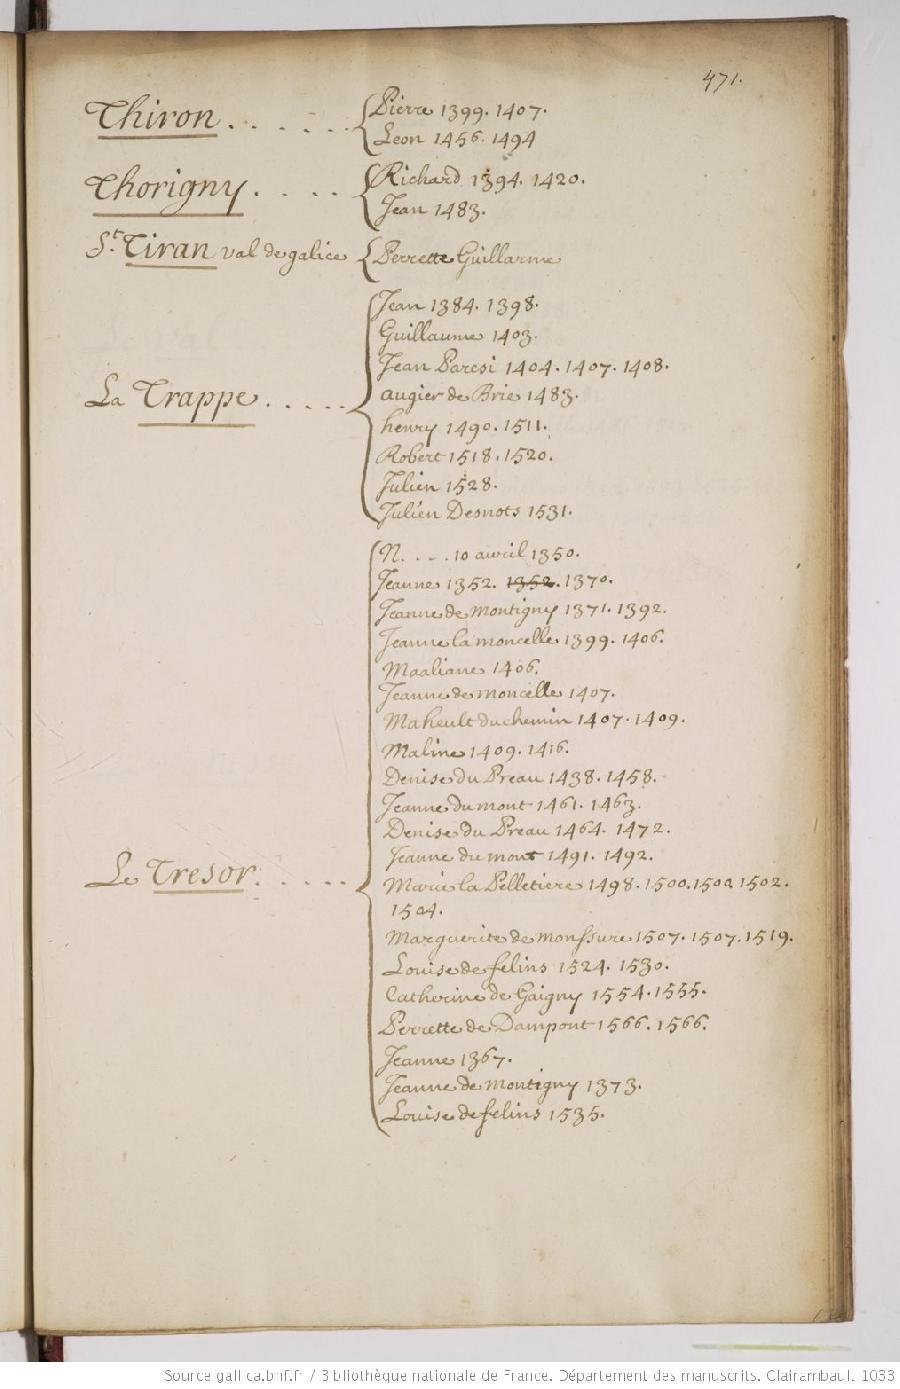 471.
Thiron . . . . . .
Pierre 1399. 1407.
Leon 1456. 1494
Thorigny. . . . .
Richard 1394. 1420.
Jean 1483.
St. Tiran val de galice
Perrette Guillarme
La Trappe. . . . .
Jean 1384. 1398.
Guillaume 1403.
Jean Paresi 1404. 1407. 1408.
augier de Brie 1483.
henry 1490. 1511.
Robert 1518. 1520.
Julien 1528.
Julien Desnots 1531.
Le Tresor. . . . .
N. . . . 10 avril 1350.
Jeanne 1352. 1352. 1370.
Jeanne de Montigny 1371. 1392.
Jeanne la moncelle 1399. 1406.
Maaliane 1406.
Jeanne de moncelle 1407.
Maheult duchemin 1407. 1409.
Maline 1409. 1416.
Denise du Preau 1438. 1458.
Jeanne du mont 1461. 1463.
Denise du Preau 1464. 1472.
Jeanne du mont 1491. 1492.
Marie la Pelletiere 1498. 1500. 1502. 1502.
1504.
Marguerite de monssure 1507. 1507. 1519.
Louise de felins 1524. 1530.
Catherine de Gaigny 1554. 1555.
Perrette de Dampont 1566. 1566.
Jeanne 1367.
Jeanne de Montigny 1373.
Louise de felins 1535.
Source gallica.bnf.fr / Bibliothèque nationale de France. Département des manuscrits. Clairambault 1033